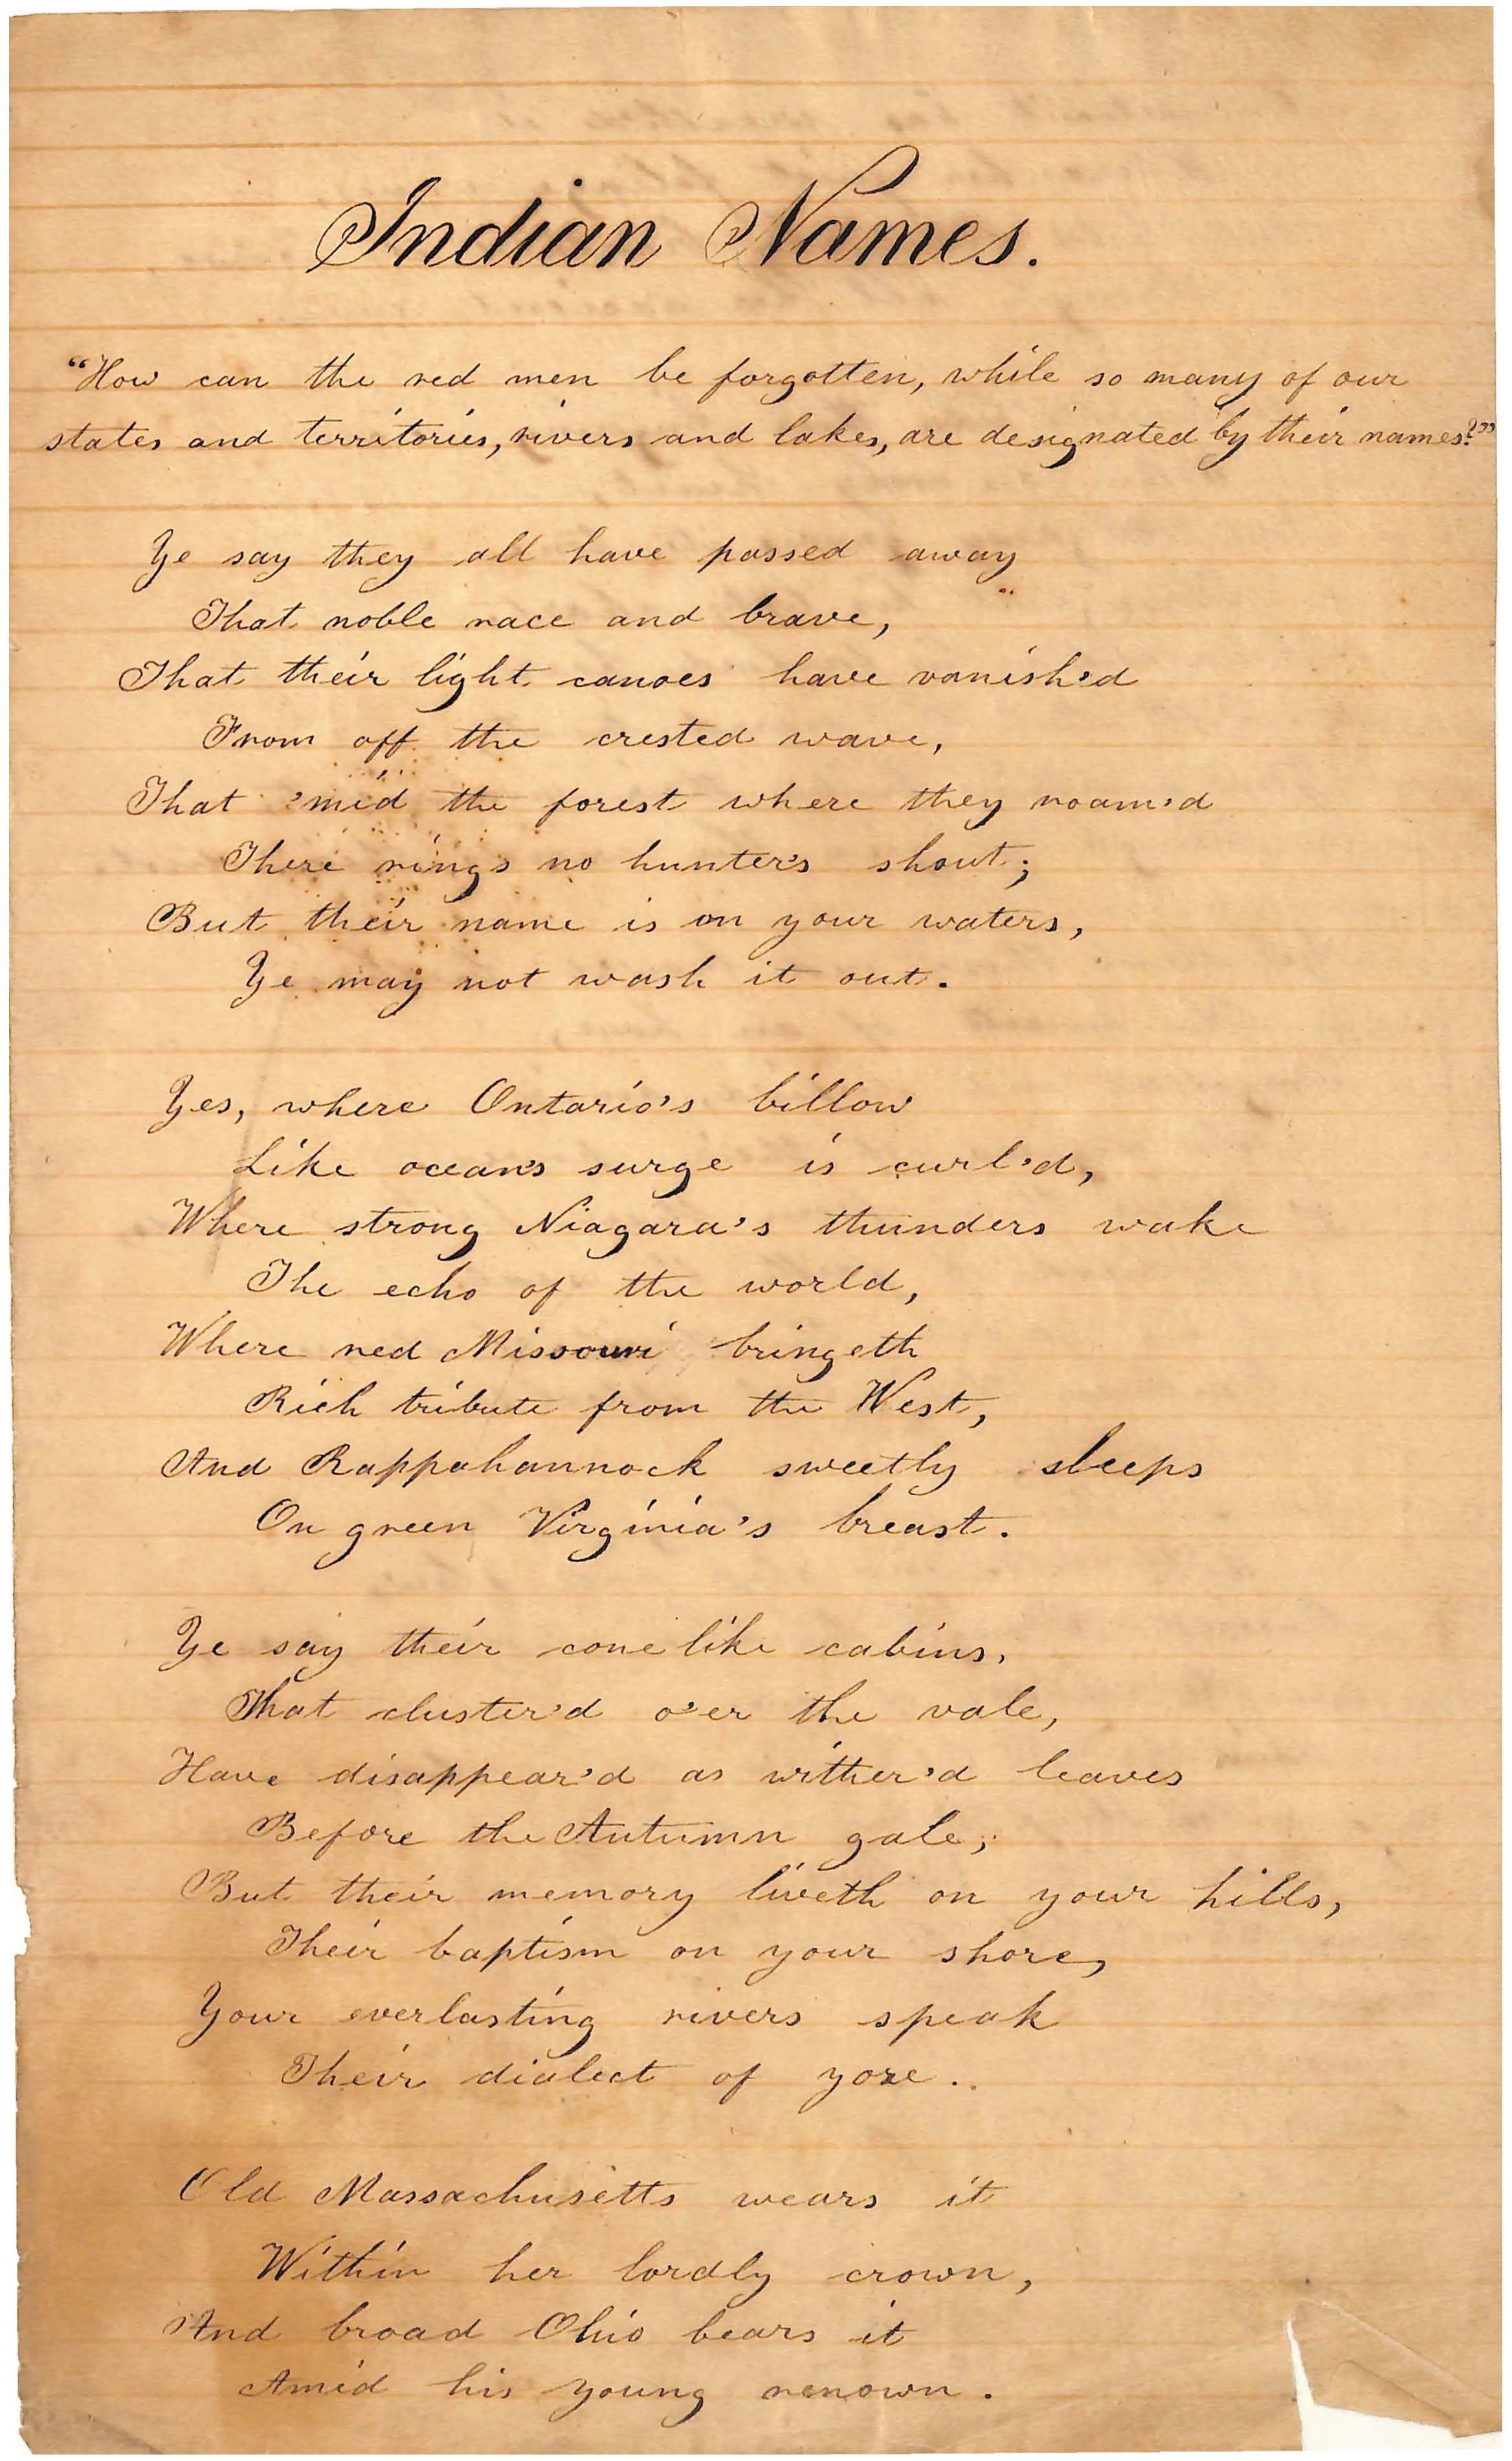 Indian Names.
“How can the red men be forgotten, while so many of our
states and territories, rivers and lakes, are designated by their names?”
Ye say they all have passed away
That noble race and brave,
That their light canoes have vanish'd
From off the crested wave,
That 'mid the forest where they roam'd
There rings no hunter's shout;
But their name is on your waters,
Ye may not wash it out.
Yes, where Ontario's billow
Like ocean's surge is curl'd,
Where strong Niagara's thunders wake
The echo of the world,
Where red Missouri bringeth
Rich tribute from the West,
And Rappahannock sweetly sleeps
On green Virginia's breast.
Ye say their conelike cabins,
That cluster'd o'er the vale,
Have disappear'd as wither'd leaves
Before the Autumn gale;
But their memory liveth on your hills,
Their baptism on your shore,
Your everlasting rivers speak
Their dialect of yore.
Old Massachusetts wears it
Within her lordly crown,
And broad Ohio bears it
Amid his young renown.